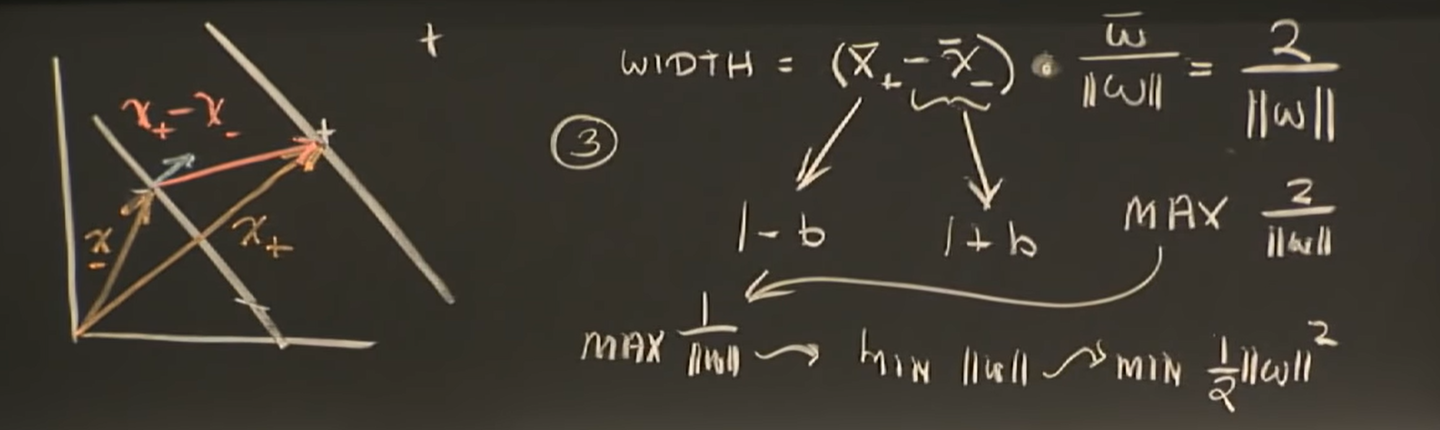 +
x₊ - x₋
+
x₋
x₊
-
-
WIDTH = (x̄₊ - x̄₋) • w̄/||w|| = 2/||w||
③
1 - b
1 + b
MAX 2/||w||
MAX 1/||w|| → MIN ||w|| → MIN 1/2 ||w||²